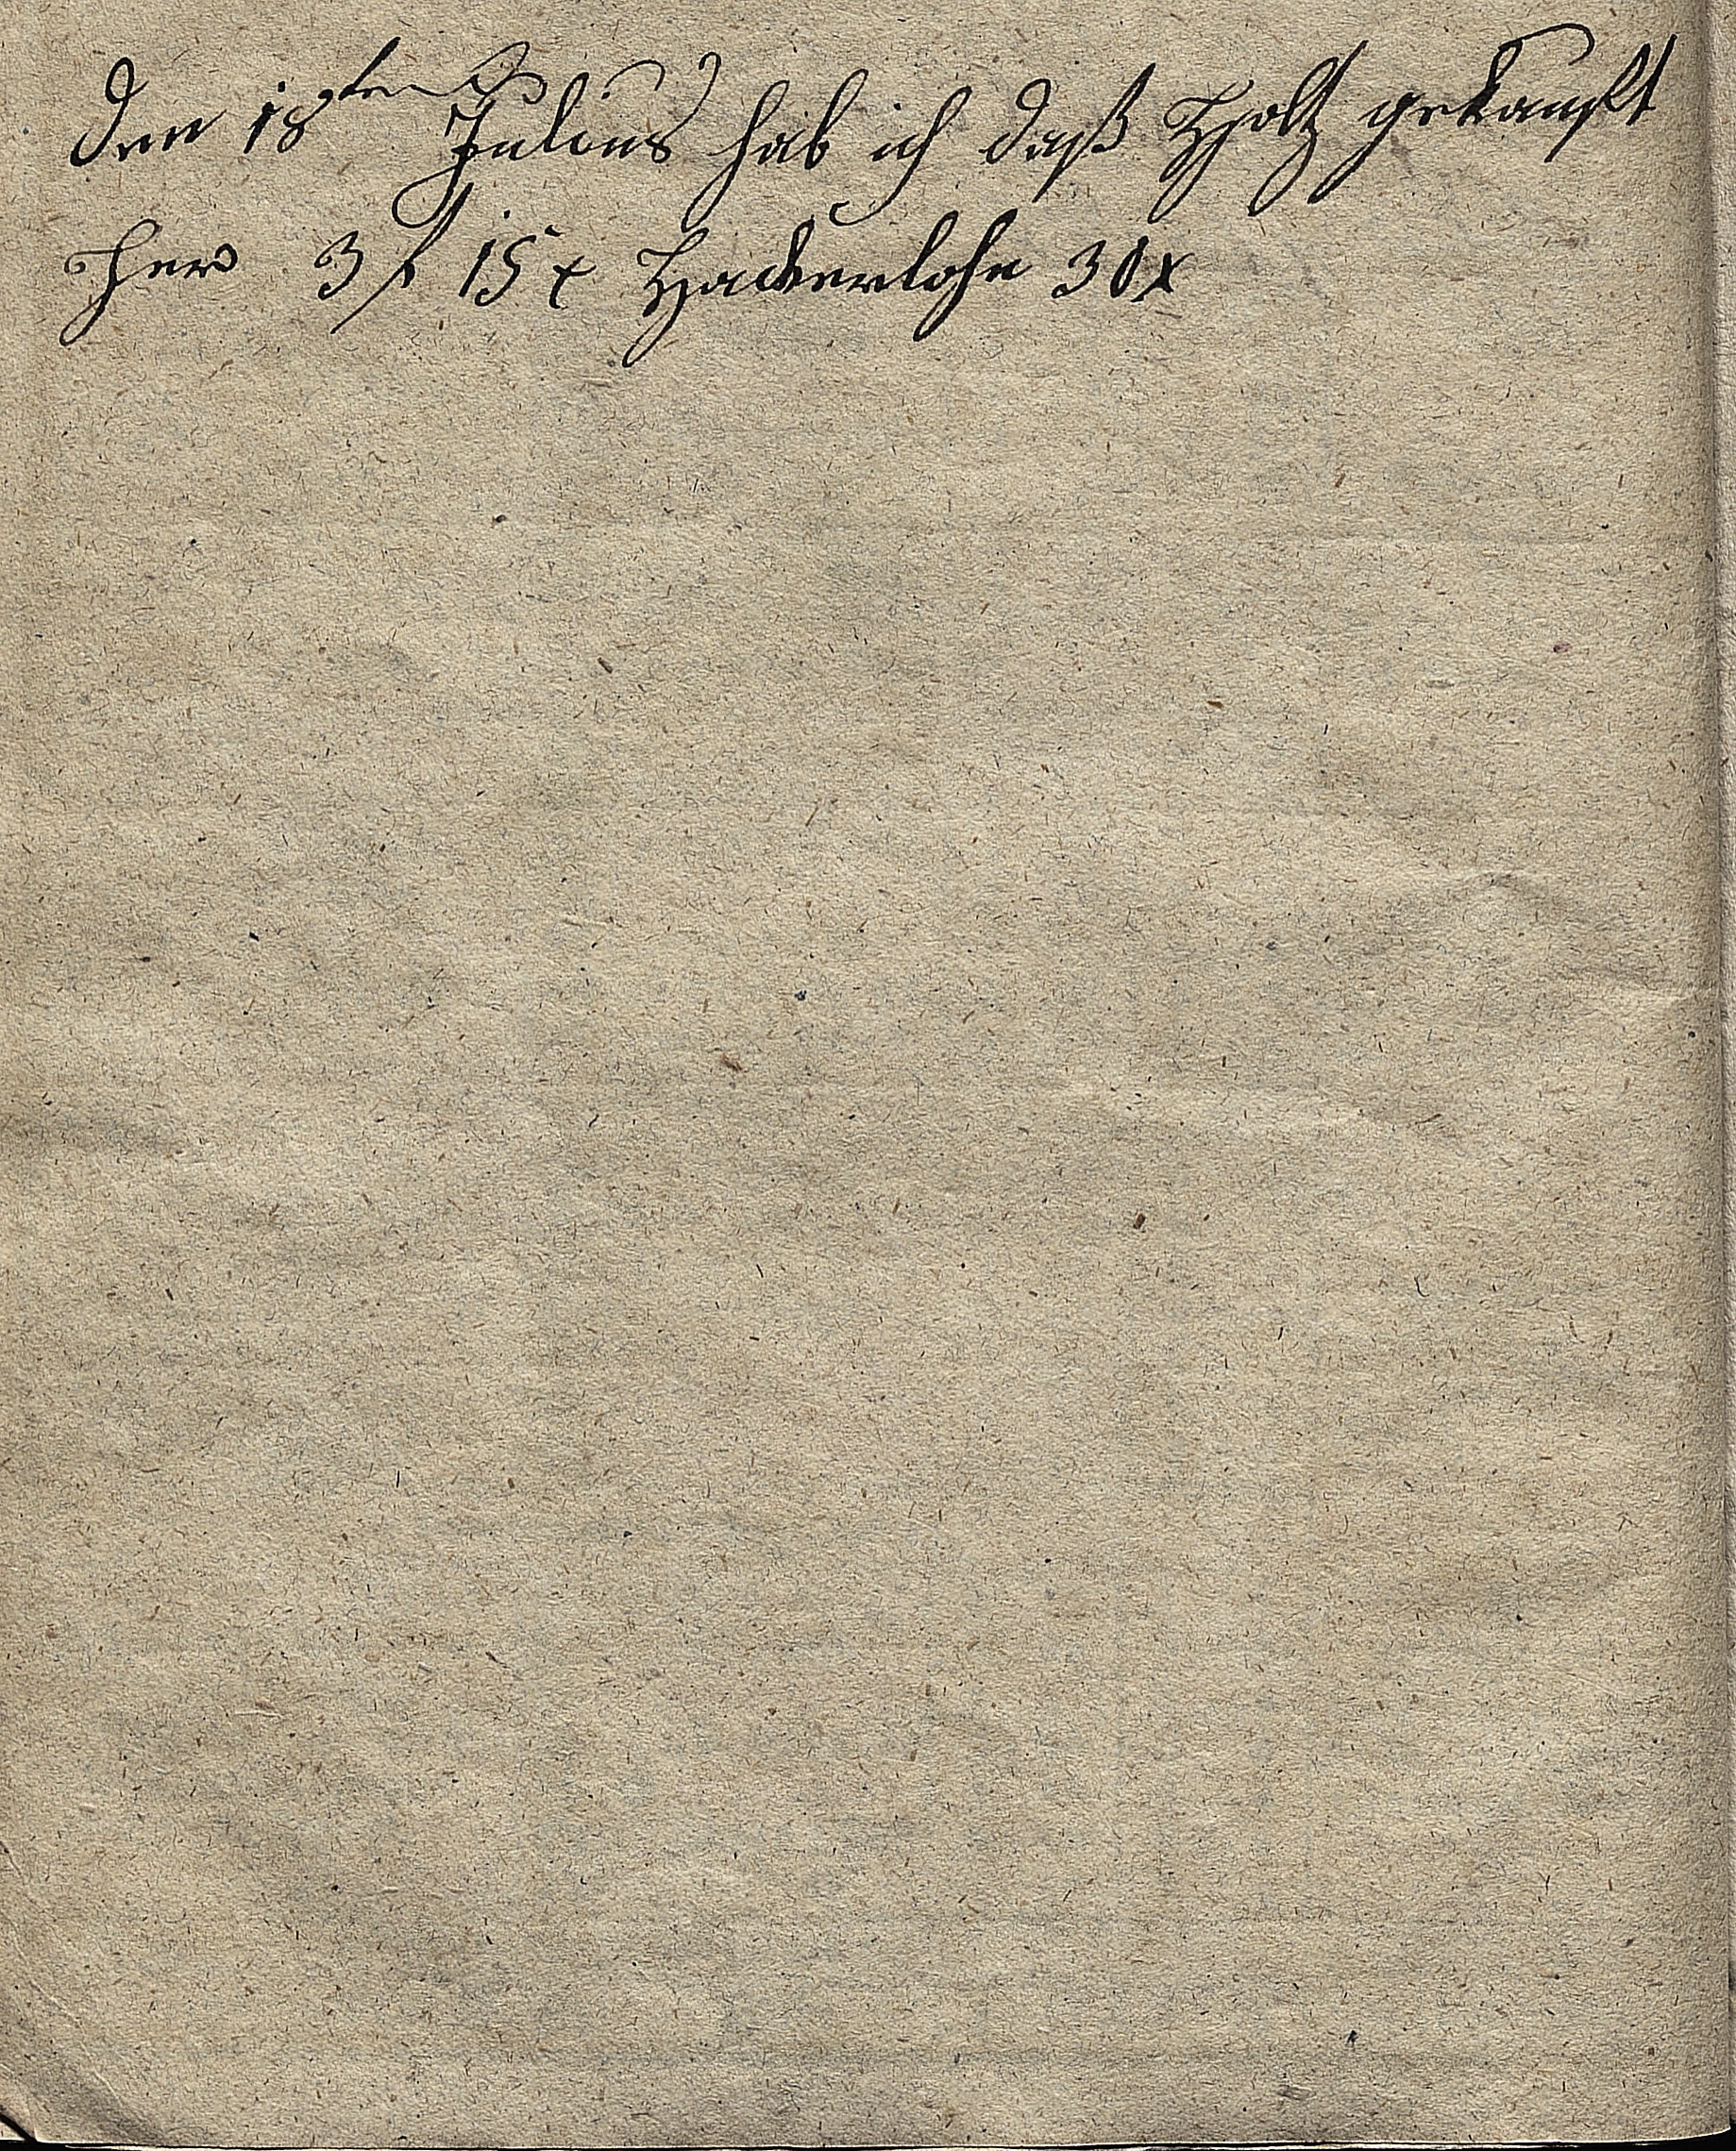 den 18ten Julius hab ich daß Holtz gekauft
3 f 15 x Hackerlohn 30 x